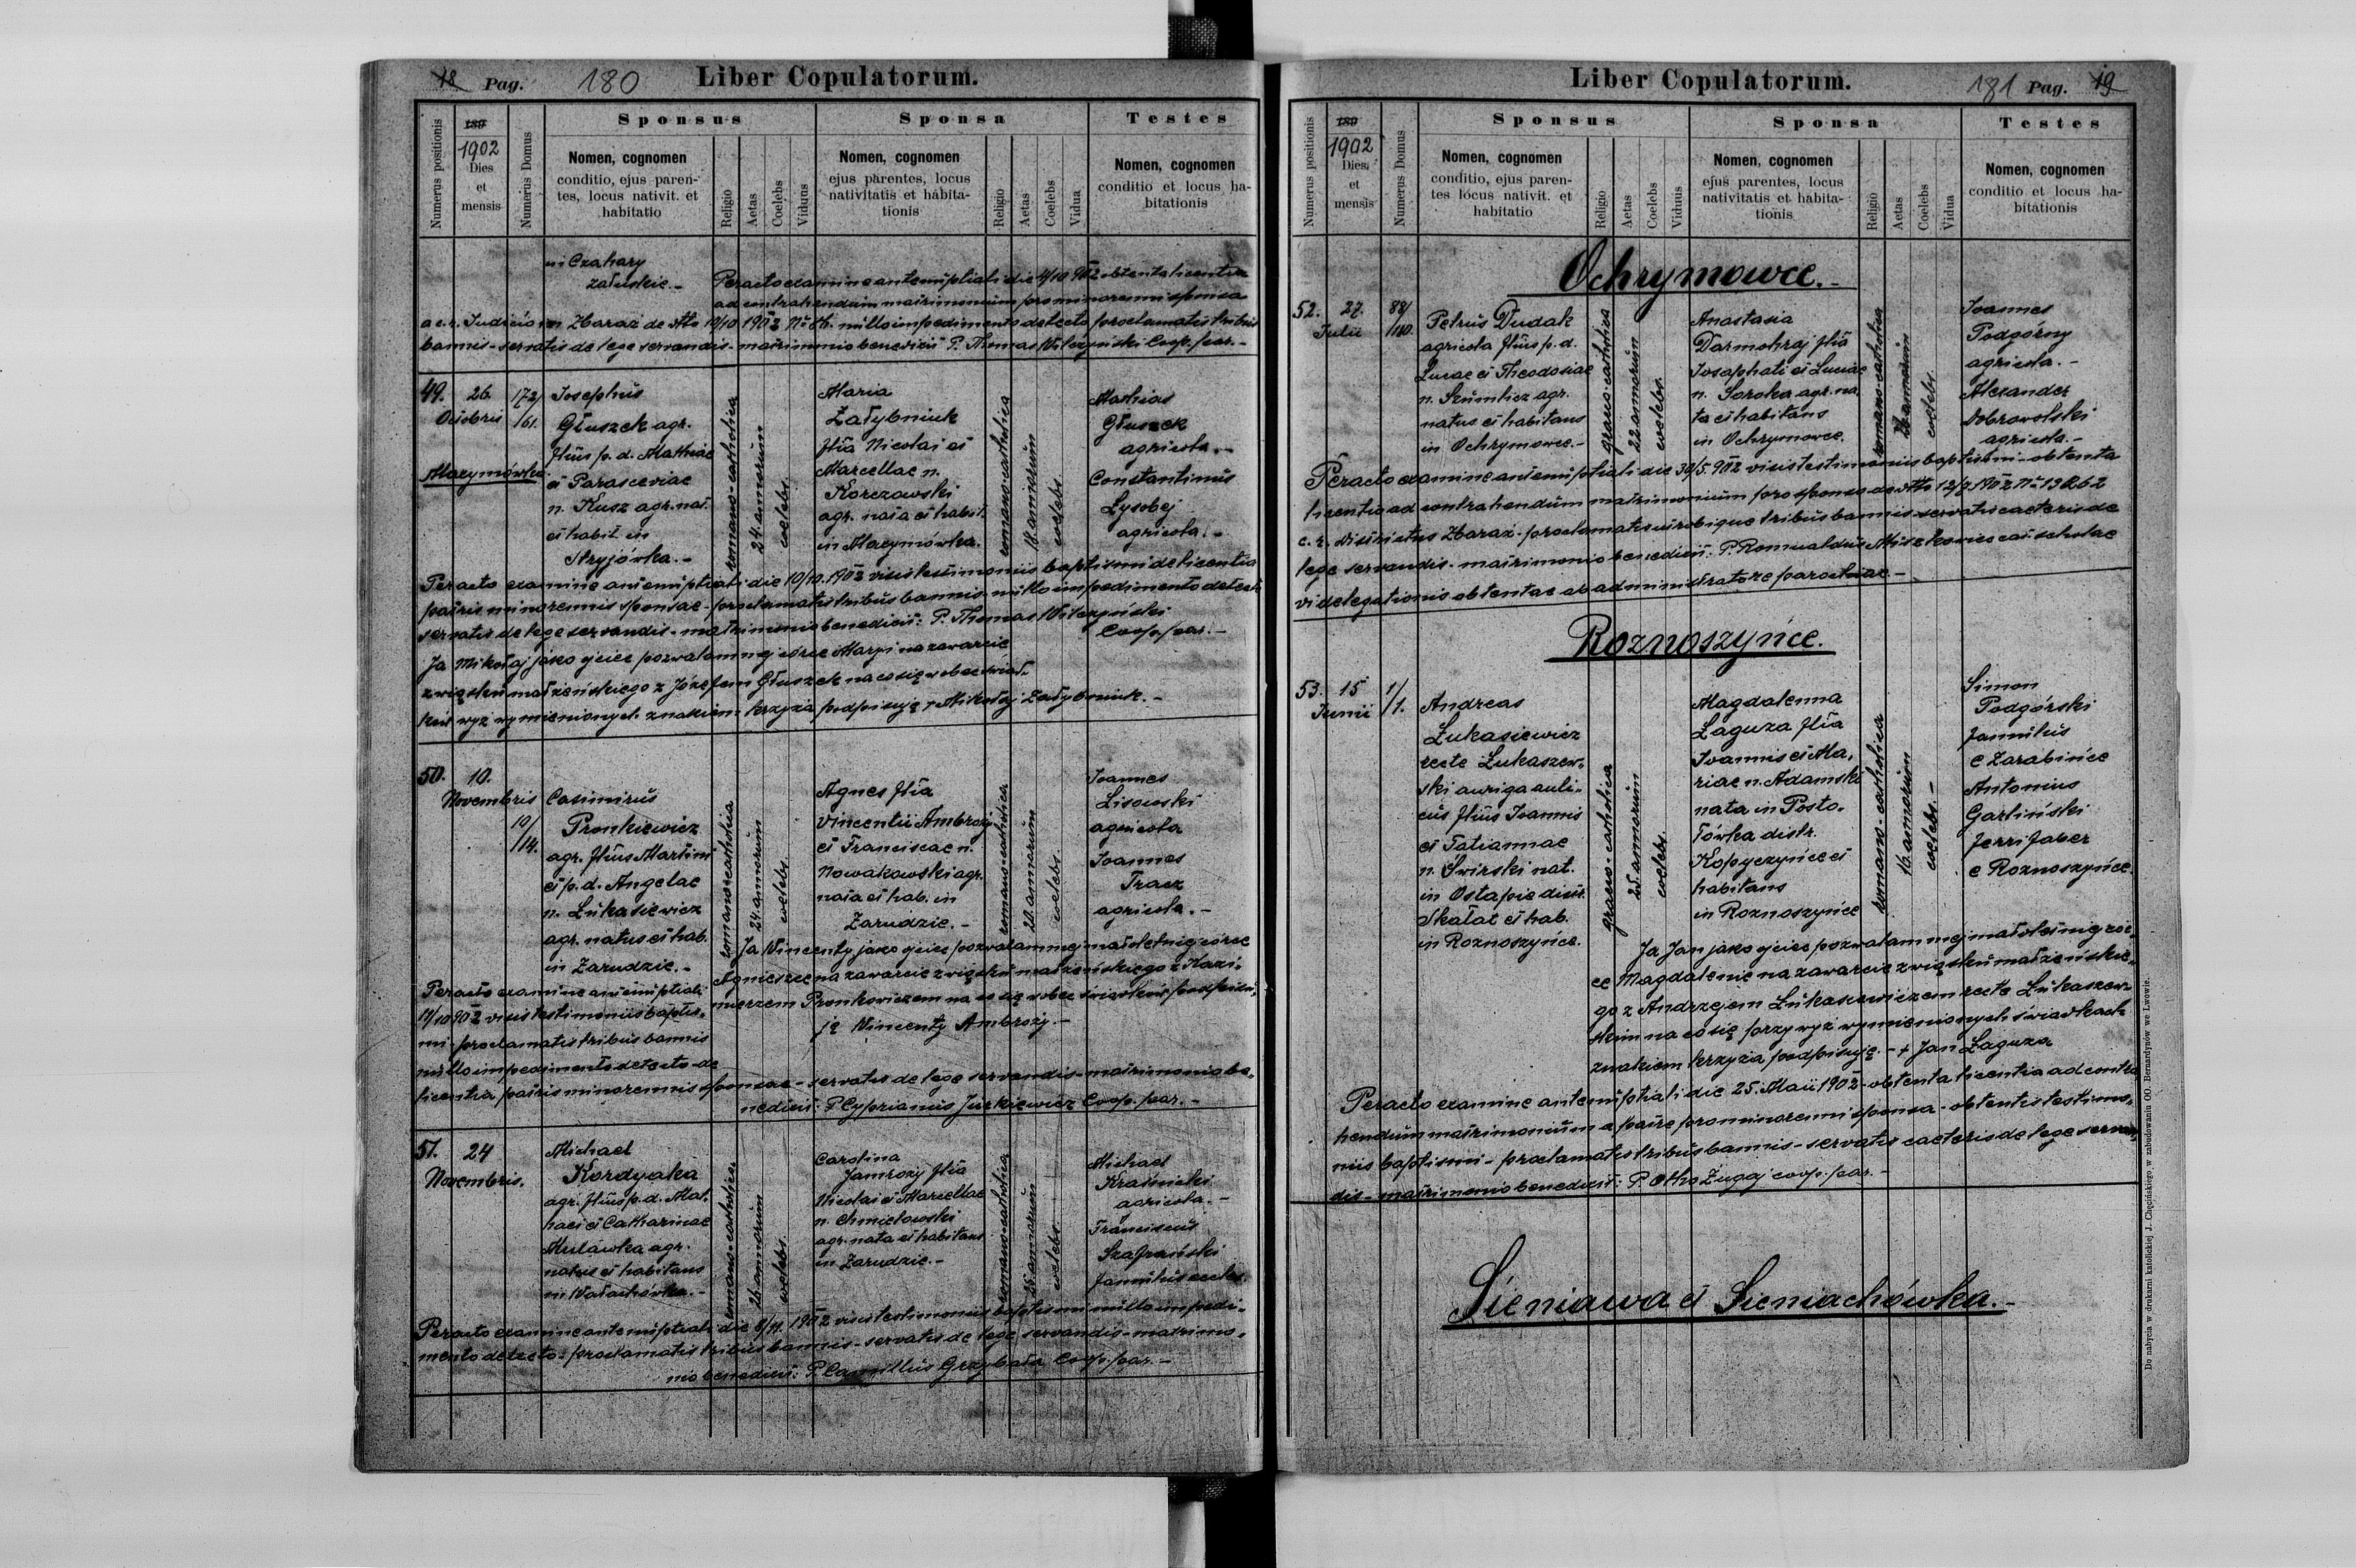 18 Pag. 180 Liber Copulatorum.
Numerus positionis
189
1902
Dies
et
mensis
Numerus Domus
Sponsus
Nomen, cognomen
conditio, ejus paren-
tes, locus nativit. et
habitatio
Religio
Aetas
Coelebs
Viduus
Sponsa
Nomen, cognomen
ejus parentes, locus
nativitatis et habita-
tionis
Religio
Aetas
Coelebs
Vidua
Testes
Nomen, cognomen
conditio et locus ha-
bitationis
in Czahary
załuskie.-
Peracto examine antenuptiali die 4/10 902 obtenta licentia
ad contrahendum matrimonium pro minorenni sponsa
a c. r. Judicio in Zbaraż de dtto 10/10 1902 nullo impedimento detecto proclamatis tribus
bannis - servatis de lege servandis - matrimonio benedixit P. Thomas Wilczyński Coop. par. -
49.
26.
Octobris
172/
161.
Marymówka
Josephus
Głuszek agr.
filius p. d. Mathiae
et Parasceviae
n. Kusz agr. nat.
et habit. in
Stryjówka.-
romano-catholica
24 annorum
coelebs.
Maria
Załybniuk
filia Nicolai et
Marcellae n.
Korczowski
agr. nata et habit.
in Marymówka.
romano-catholica
18 annorum
coelebs.
Mathias
Głuszek
agricola.-
Constantinus
Lysobej
agricola.-
Peracto examine antenuptiali die 10/10. 1902 visis testimoniis baptismi de licentia
patris minorennis sponsae - proclamatis tribus bannis - nullo impedimento detecto
servatis de lege servandis - matrimonio benedixit: P. Thomas Wilczyński
Coop. par. -
Ja Mikołaj jako ojciec pozwalam mej córce Maryi na zawarcie
związku małżeńskiego z Józefem Głuszek na co się wobec świad-
ków wyż wymienionych znakiem krzyża podpisuję + Mikołaj Załybniuk. -
50.
10.
Novembris
10/
114.
Casimirus
Pronkiewicz
agr. filius Martini
et p. d. Angelae
n. Łukasiewicz
agr. natus et hab.
in Zarudzie.-
romano-catholica
24 annorum
coelebs.
Agnes filia
Vincentii Ambroży
et Franciscae n.
Nowakowski agr.
nata et hab. in
Zarudzie.-
romano-catholica
20 annorum
coelebs.
Joannes
Lisowski
agricola
Joannes
Tracz
agricola.-
Ja Wincenty jako ojciec pozwalam mej małoletniej córce
Agnieszce na zawarcie związku małżeńskiego z Kazi-
mierzem Pronkiewiczem na co się wobec świadków podpisu-
ję Wincenty Ambroży.-
Peracto examine antenuptiali
11/10 902 visis testimoniis baptis-
mi - proclamatis tribus bannis
nullo impedimento detecto - de
licentia patris minorennis sponsae - servatis de lege servandis - matrimonio be-
nedixit: P. Cyprianus Jurkiewicz Coop. par. -
51.
24
Novembris.
Michael
Kordyaka
agr. filius p. d. Mat-
haei et Catharinae
Mulawka agr.
natus et habitans
in Wałachówka.-
romano-catholica
26 annorum
coelebs.
Carolina
Jamrozy filia
Nicolai et Marcellae
n. Chmielowski
agr. nata et habitans
in Zarudzie.-
romano-catholica
25 annorum
coelebs.
Michael
Kraśnicki
agricola.-
Franciscus
Szafrański
famulus eccles.
Peracto examine antenuptiali die 8/11. 1902 visis testimoniis baptismi nullo impedi-
mento detecto - proclamatis tribus bannis - servatis de lege servandis - matrimo-
nio benedixit: P. Camillus Grzybała Coop. par. -
Liber Copulatorum. 181 Pag. 19
Numerus positionis
189
1902
Dies
et
mensis
Numerus Domus
Sponsus
Nomen, cognomen
conditio, ejus paren-
tes locus nativit. et
habitatio
Religio
Aetas
Coelebs
Viduus
Sponsa
Nomen, cognomen
ejus parentes, locus
nativitatis et habita-
tionis
Religio
Aetas
Coelebs
Vidua
Testes
Nomen, cognomen
conditio et locus ha-
bitationis
Ochrymowce.-
52.
27.
Julii
88/
110.
Petrus Dudak
agricola filius p. d.
Lucae et Theodosiae
n. Szumlicz agr.
natus et habitans
in Ochrymowce.-
graeco-catholica
22 annorum
coelebs.
Anastasia
Darmohraj filia
Josaphati et Luciae
n. Soroka agr. na-
ta et habitans
in Ochrymowce.
romano-catholica
annorum
coelebs.
Joannes
Podgórny
agricola.-
Alexander
Dobrowolski
agricola.-
Peracto examine antenuptiali die 30/5. 902 visis testimoniis baptismi - obtenta
licentia ad contrahendum matrimonium pro sponso de dtto 12/7 1902 N= 13062
c. r. districtus Zbaraż - proclamatis utrobique tribus bannis - servatis caeteris de
lege servandis - matrimonio benedixit: P. Romualdus cat. scholae
vi delegationis obtentae ab administratore parochiae.-
Roznoszyńce.
53.
15
Junii
1/
1.
Andreas
Łukasiewicz
recte Łukaszew-
ski auriga auli-
cus filius Joannis
et Tatiannae
n. Świrski nat.
in Ostapie distr.
Skałat et hab.
in Roznoszyńce.
graeco-catholica
25 annorum
coelebs.
Magdalenna
Łaguza filia
Joannis et Ma-
riae n. Adamski
nata in Posto-
łówka distr.
Kopyczyńce et
habitans
in Roznoszyńce
romano-catholica
16. annorum
coelebs.-
Simon
Podgórski
famulus
e Zarabińce
Antonius
Garliński
ferri faber
e Roznoszyńce.
Ja Jan jako ojciec pozwalam mej małoletniej cór-
ce Magdalenie na zawarcie związku małżeńskie-
go z Andrzejem Łukasiewiczem recte Łukaszew-
skim na co się przy wyż wymienionych świadkach
znakiem krzyża podpisuję.- + Jan Łaguza
Peracto examine antenuptiali die 25. Maii 1902 - obtenta licentia ad contra
hendum matrimonium a patre pro minorenni sponsa - obtentis testimo-
niis baptismi - proclamatis tribus bannis - servatis caeteris de lege servan-
dis - matrimonio benedixit: P. Otho Zugaj coop. par. -
Sieniawa et Sieniachówka.-
Do nabycia w drukarni katolickiej J. Chęcińskiego, w zabudowaniu OO. Bernardynów we Lwowie.